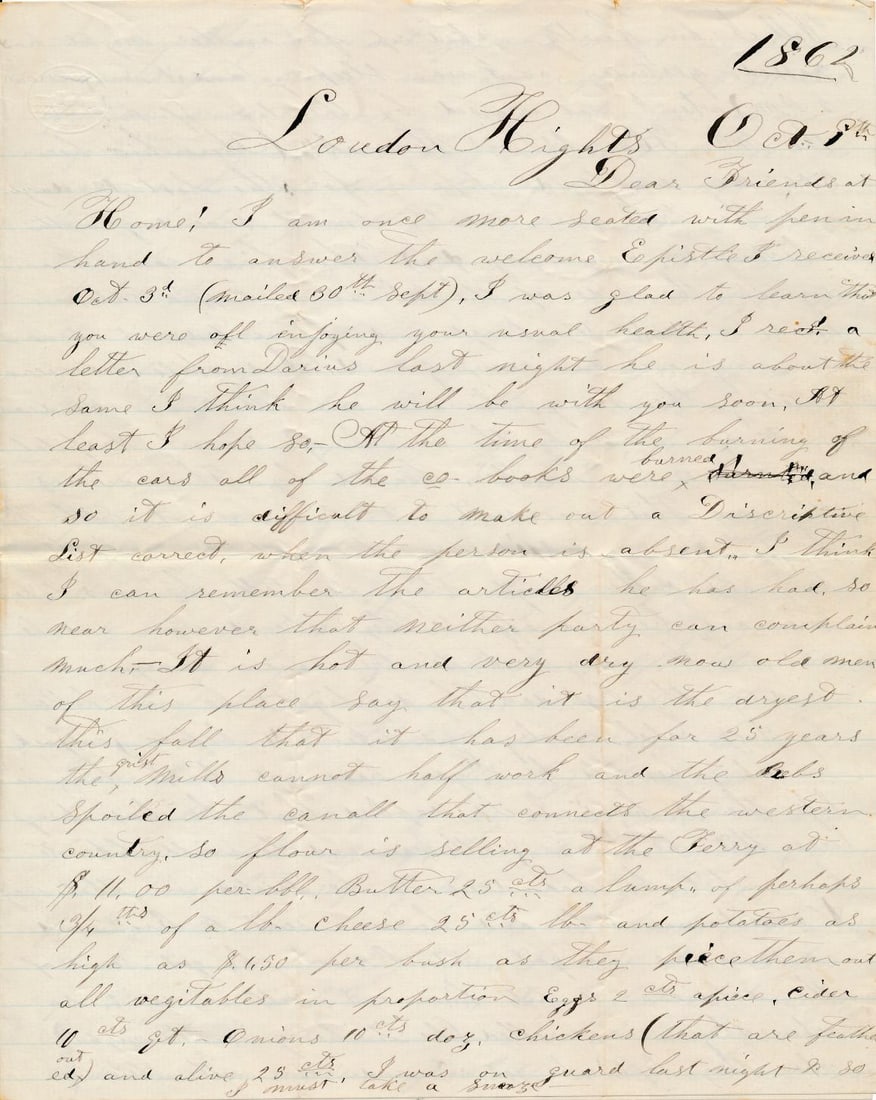 1862
Loudon Hights Oct. 9th
Dear Friends at
Home! I am once more seated with pen in
hand to answer the welcome Epistle I received
Oct. 3d (mailed 30th Sept), I was glad to learn that
you were all injoying your usual health, I recd. a
letter from Darius last night he is about the
same I think he will be with you soon, At
least I hope so,- At the time of the burning of
the cars all of the co- books were burned, and
so it is difficult to make out a Discriptive
List correct, when the person is absent,. I think
I can remember the articles he has had, so
near however that neither party can complain
much,- It is hot and very dry now old men
of this place say that it is the dryest
this fall that it has been for 25 years
the grist mills cannot half work and the Rebs
Spoiled the canall that connects the western
country, so flour is selling at the Ferry at
$. 11,00 per bbl, Butter 25 cts a lump,. of perhaps
3/4 ths of a lb- cheese 25 cts lb- and potatoes as
high as $.1,50 per bush as they piece them out
all vegitables in proportion Eggs 2 cts apiece, Cider
10 cts qt,- Onions 10 cts doz, chickens (that are feather
ed out) and alive 25 cts, I was on guard last night & so
I must take a snooze